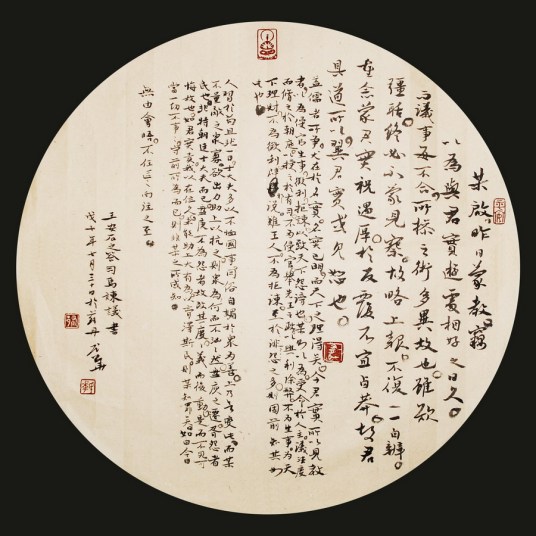 某啟昨日蒙教竊
以為與君實遊處相好之日久。
而議事每不合,所操之術多異故也。雖欲
彊聒終必不蒙見察。故略上報。不復一一自辨。
重念蒙君實視遇厚。於反覆不宜鹵莽。故君
具道所以冀君實或見恕也。
蓋儒者所爭。尤在於名實。名實已明。而天下之理得矣。今君實所以見教
者。以為侵官生事徵利拒諫。以致天下怨謗也。某則以為受命於人主。議法度
而脩之於朝廷。以授之於有司。不為侵官。舉先王之政。以興利除弊不為生事。為天
下理財。不為徵利。辟邪說。難壬人。不為拒諫。至於怨誹之多。則固前知其如
此也。
人習於苟且非一日。士大夫多以不恤國事同俗自媚於眾為善。上乃欲變此。而某
不量敵之眾寡。欲出力助上以抗之。則眾何為而不洶洶然。盤庚之遷。胥怨者
民也。非特朝廷士大夫而已。盤庚不為怨者故改其度。度義而後動。是而不見可
悔故也。如君實責我以在位久。未能助上大有為。以膏澤斯民。則某知罪矣。如曰今日
當一切不事事。守前所為而已。則非某之所敢知。
無由會晤。不任區區向往之至。
王安石之答司馬諫議書
年七月三十日於